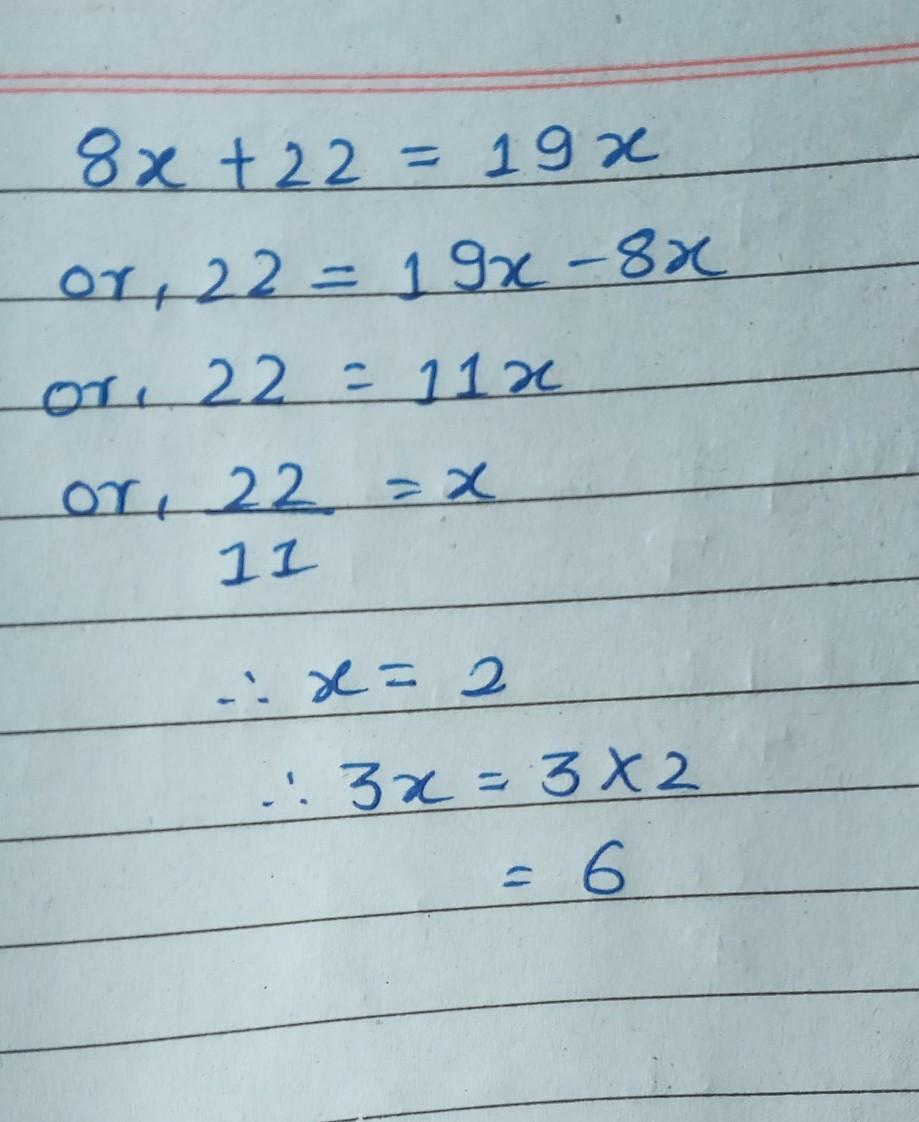 8x + 22 = 19x
or, 22 = 19x - 8x
or, 22 = 11x
or, 22/11 = x
∴ x = 2
∴ 3x = 3 × 2
= 6